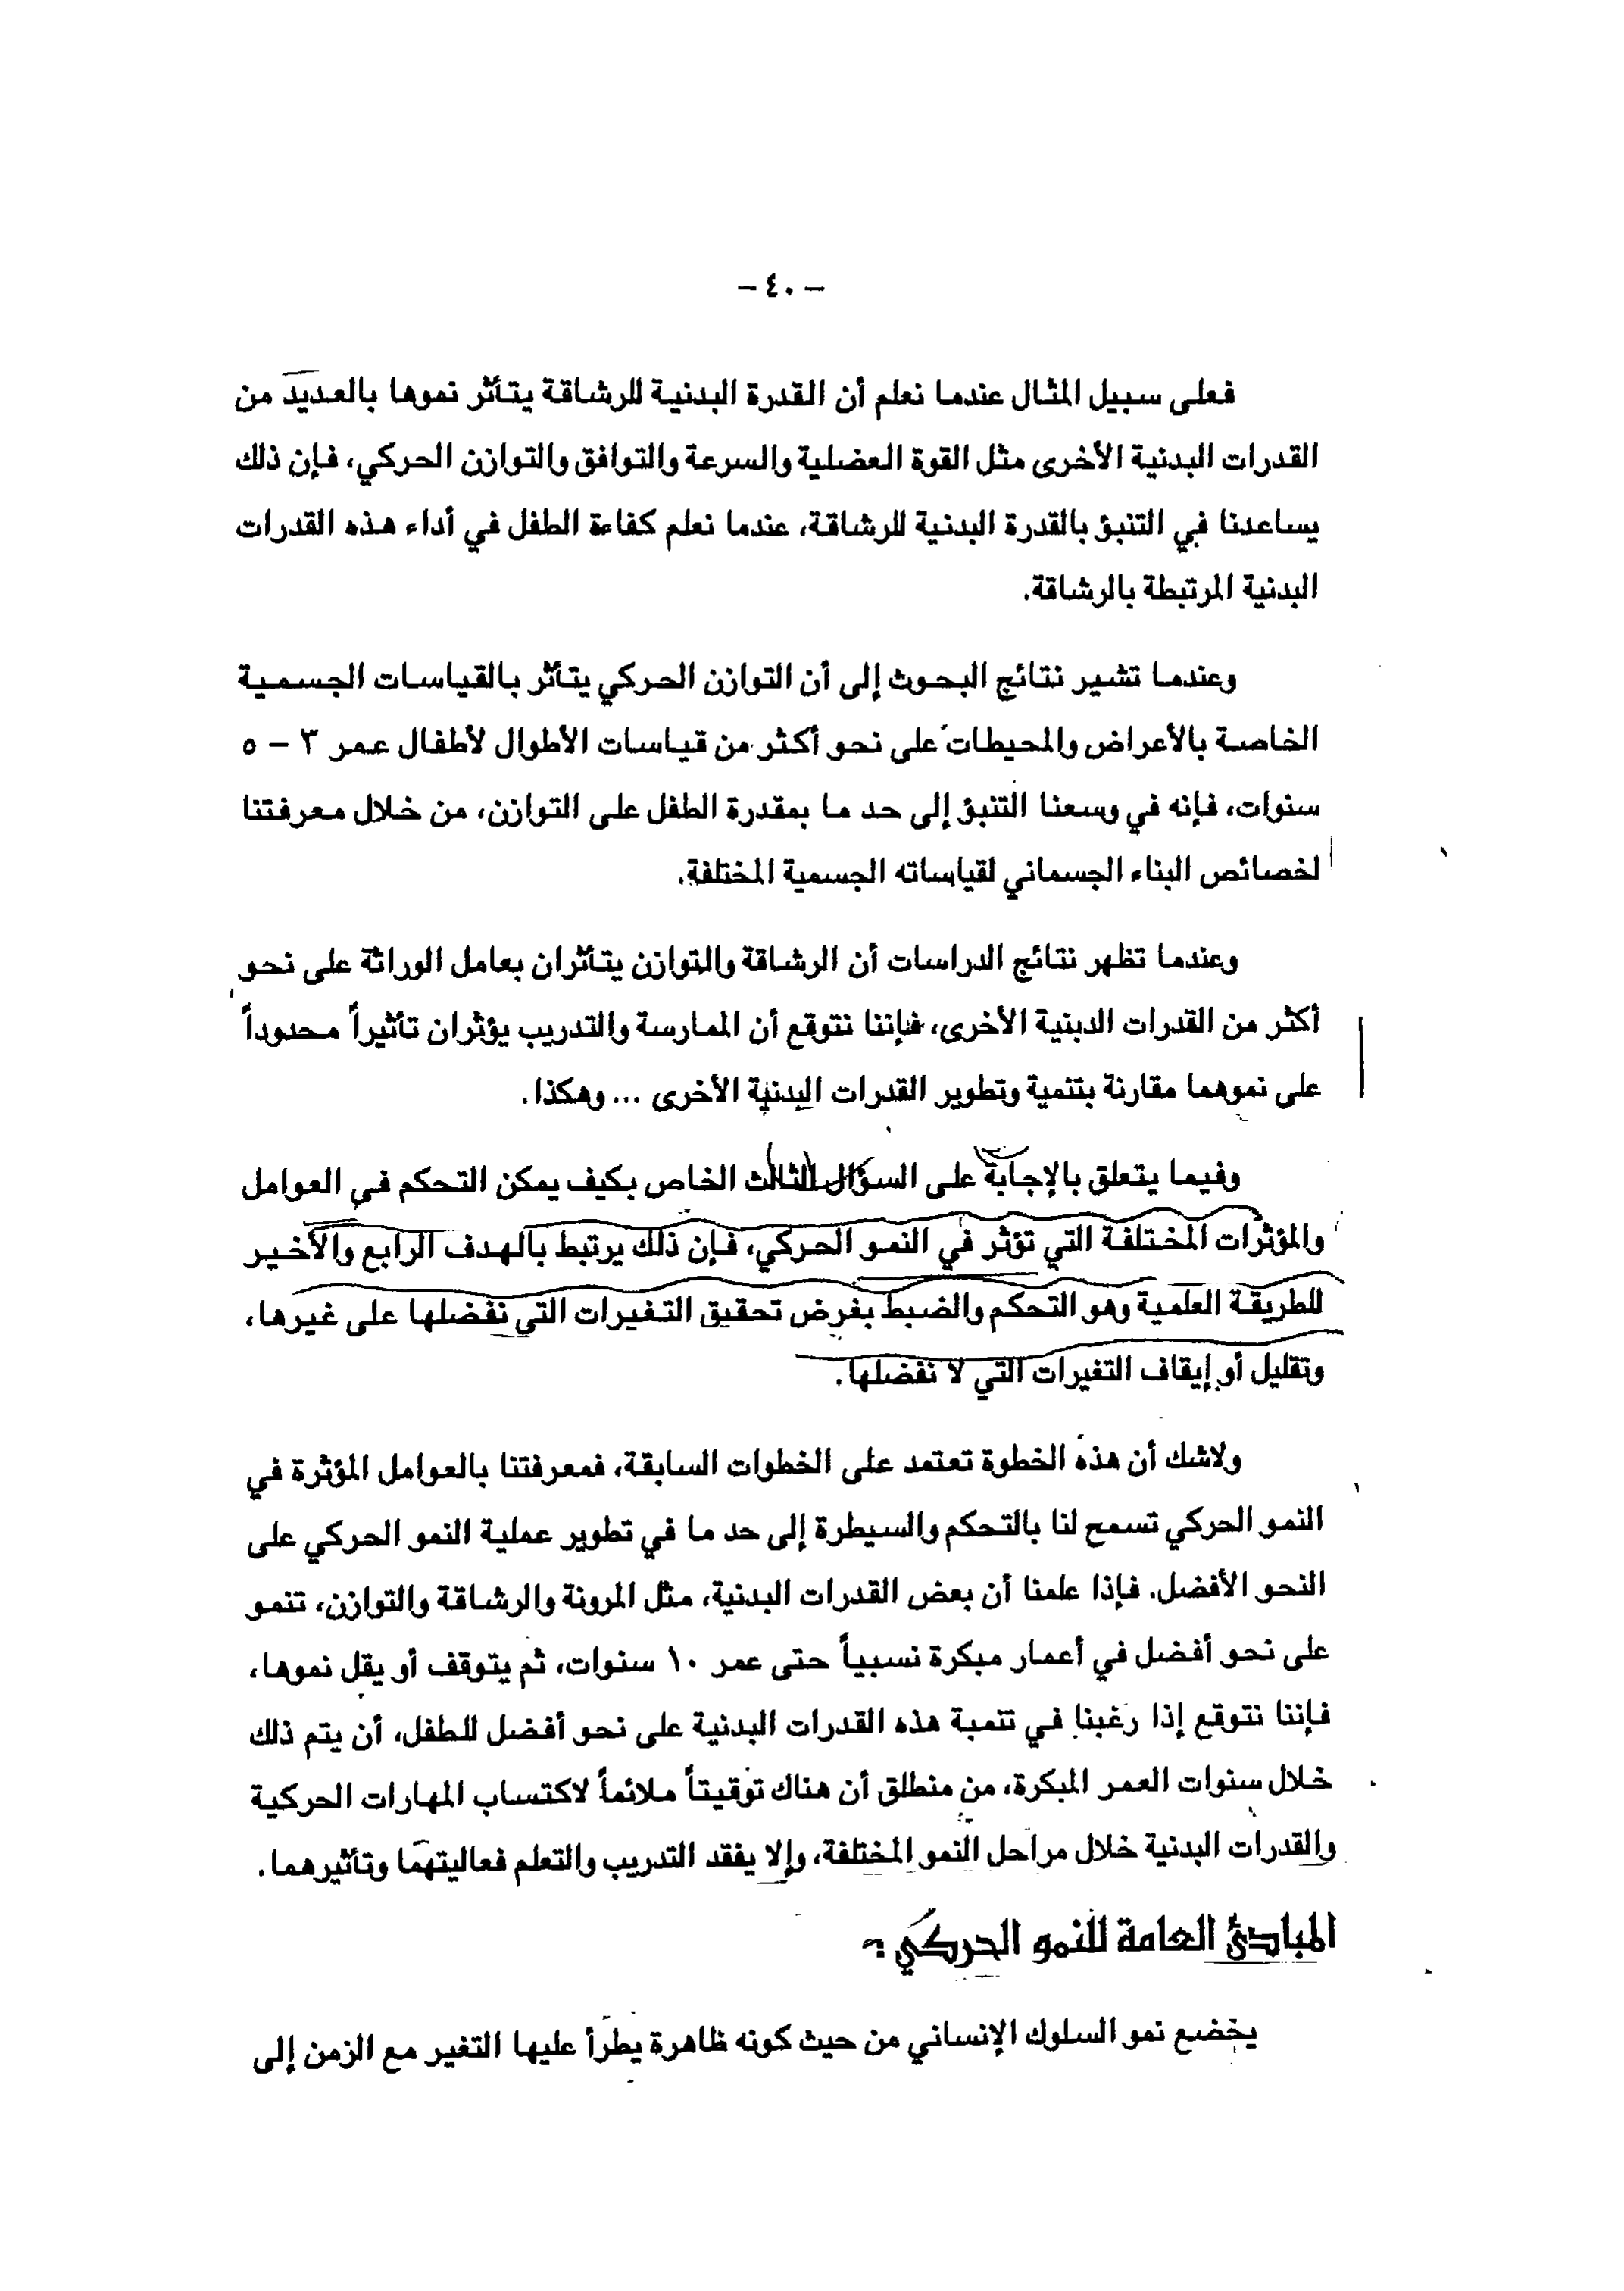 - ٤٠ -
فعلى سبيل المثال عندما نعلم أن القدرة البدنية للرشاقة يتأثر نموها بالعديد من
القدرات البدنية الأخرى مثل القوة العضلية والسرعة والتوافق والتوازن الحركي، فإن ذلك
يساعدنا في التنبؤ بالقدرة البدنية للرشاقة، عندما نعلم كفاءة الطفل في أداء هذه القدرات
البدنية المرتبطة بالرشاقة.
وعندما تشير نتائج البحوث إلى أن التوازن الحركي يتأثر بالقياسات الجسمية
الخاصة بالأعراض والمحيطات على نحو أكثر من قياسات الأطوال لأطفال عمر ٣ - ٥
سنوات، فإنه في وسعنا التنبؤ إلى حد ما بمقدرة الطفل على التوازن، من خلال معرفتنا
لخصائص البناء الجسماني لقياساته الجسمية المختلفة.
وعندما تظهر نتائج الدراسات أن الرشاقة والتوازن يتأثران بعامل الوراثة على نحو
أكثر من القدرات الدبنية الأخرى، فإننا نتوقع أن الممارسة والتدريب يؤثران تأثيراً محدوداً
على نموهما مقارنة بتنمية وتطوير القدرات البدنية الأخرى ... وهكذا.
وفيما يتعلق بالإجابة على السؤال الثالث الخاص بكيف يمكن التحكم في العوامل
والمؤثرات المختلفة التي تؤثر في النمو الحركي، فإن ذلك يرتبط بالهدف الرابع والأخير
للطريقة العلمية وهو التحكم والضبط بغرض تحقيق التغيرات التي نفضلها على غيرها،
وتقليل أو إيقاف التغيرات التي لا نفضلها.
ولاشك أن هذه الخطوة تعتمد على الخطوات السابقة، فمعرفتنا بالعوامل المؤثرة في
النمو الحركي تسمح لنا بالتحكم والسيطرة إلى حد ما في تطوير عملية النمو الحركي على
النحو الأفضل. فإذا علمنا أن بعض القدرات البدنية، مثل المرونة والرشاقة والتوازن، تنمو
على نحو أفضل في أعمار مبكرة نسبياً حتى عمر ١٠ سنوات، ثم يتوقف أو يقل نموها،
فإننا نتوقع إذا رغبنا في تنمية هذه القدرات البدنية على نحو أفضل للطفل، أن يتم ذلك
خلال سنوات العمر المبكرة، من منطلق أن هناك توقيتاً ملائماً لاكتساب المهارات الحركية
والقدرات البدنية خلال مراحل النمو المختلفة، وإلا يفقد التدريب والتعلم فعاليتهما وتأثيرهما.
المبادئ العامة للنمو الحركي :-
يخضع نمو السلوك الإنساني من حيث كونه ظاهرة يطرأ عليها التغير مع الزمن إلى